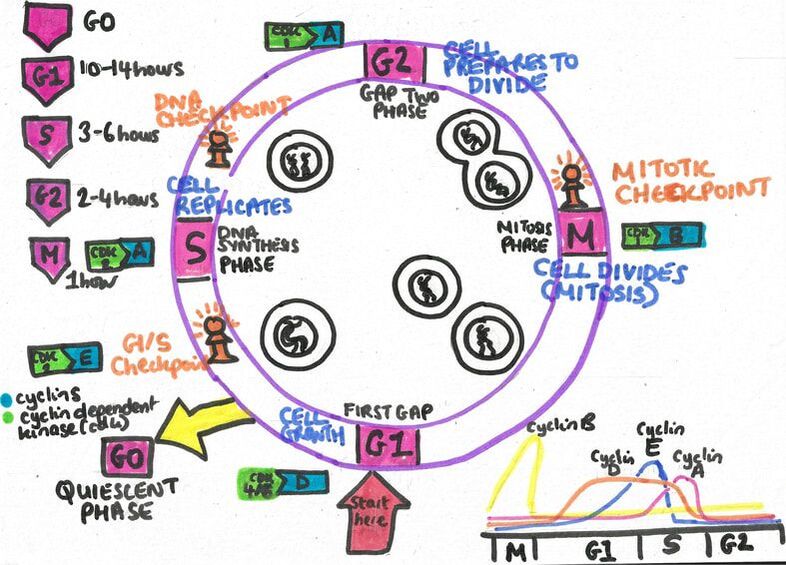 G0
G1 10-14hours
S 3-6hours
G2 2-4hours
M 1hour
CDK 2 A
CDK 1 A
G2
CELL PREPARES TO
DIVIDE
GAP TWO
PHASE
DNA
CHECKPOINT
CELL
REPLICATES
S
DNA
SYNTHESIS
PHASE
MITOTIC
CHECKPOINT
MITOSIS
PHASE
M
CDK 1 B
CELL DIVIDES
(MITOSIS)
G1/S
Checkpoint
CDK 2 E
cyclins
cyclin dependent
kinase (cdk)
G0
QUIESCENT
PHASE
CELL
GROWTH
FIRST GAP
G1
CDK 4/6 D
Start
here
Cyclin B
Cyclin
D
Cyclin
E
Cyclin
A
M G1 S G2